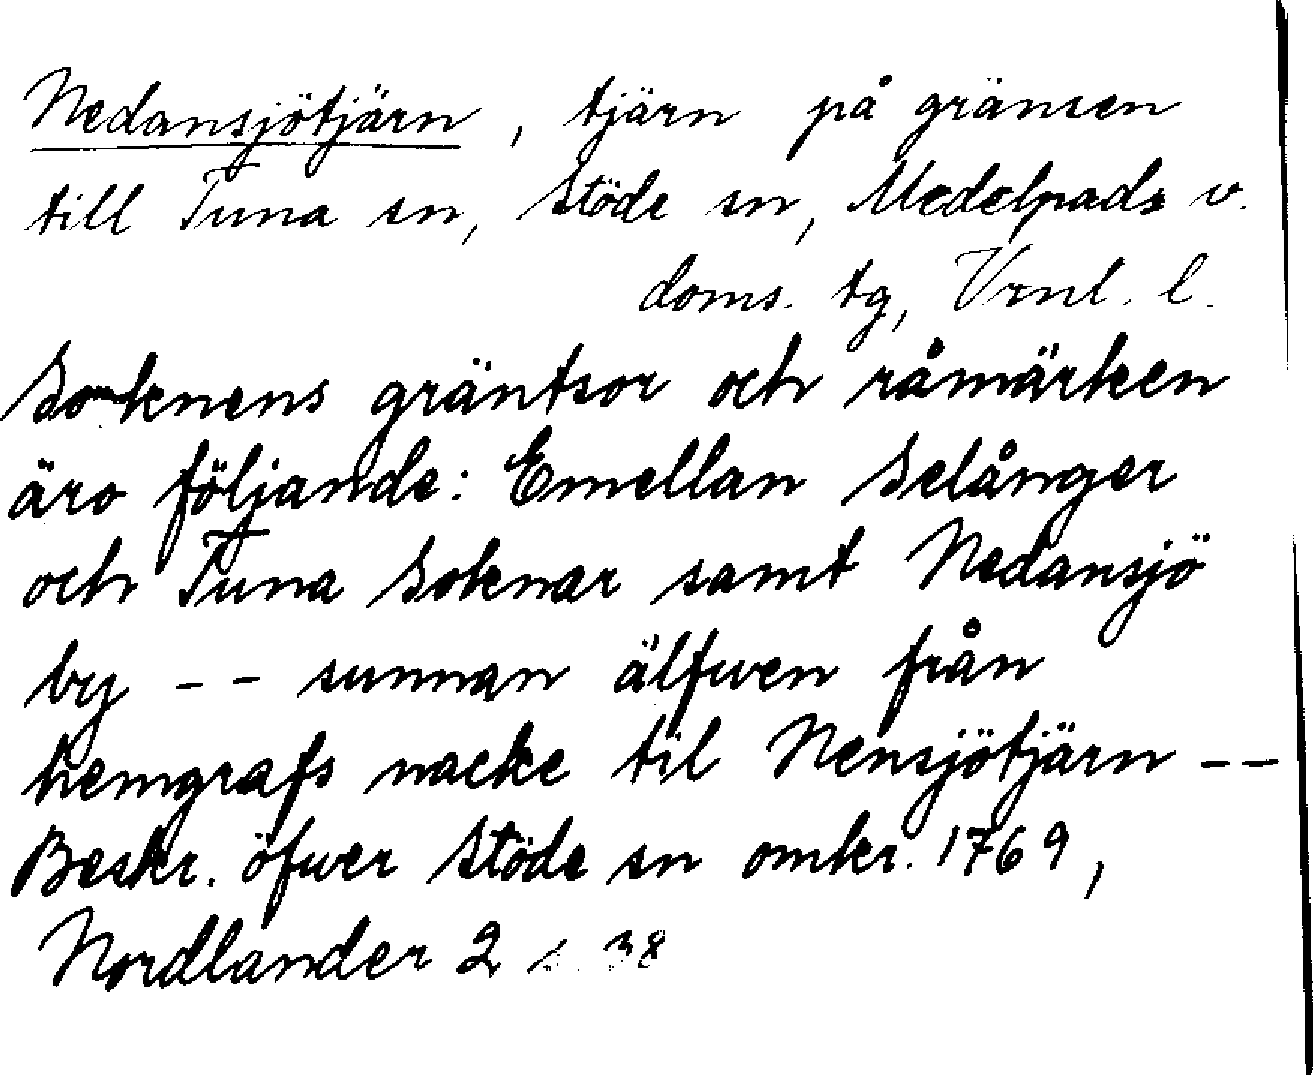 Nedansjötjärn, tjärn på gränsen
till Tuna sn, Stöde sn, Medelpads v.
doms. tg, Vrnl. l.
Soknens gräntsor och råmärken
äro följande: Emellan Selånger
och Tuna Soknar samt Nedansjö
by -- sunnan älfwen från
hemgrafs nacke til Nensjötjärn --
Beskr. öfwer Stöde sn omkr. 1769,
Nordlander 2 s. 38